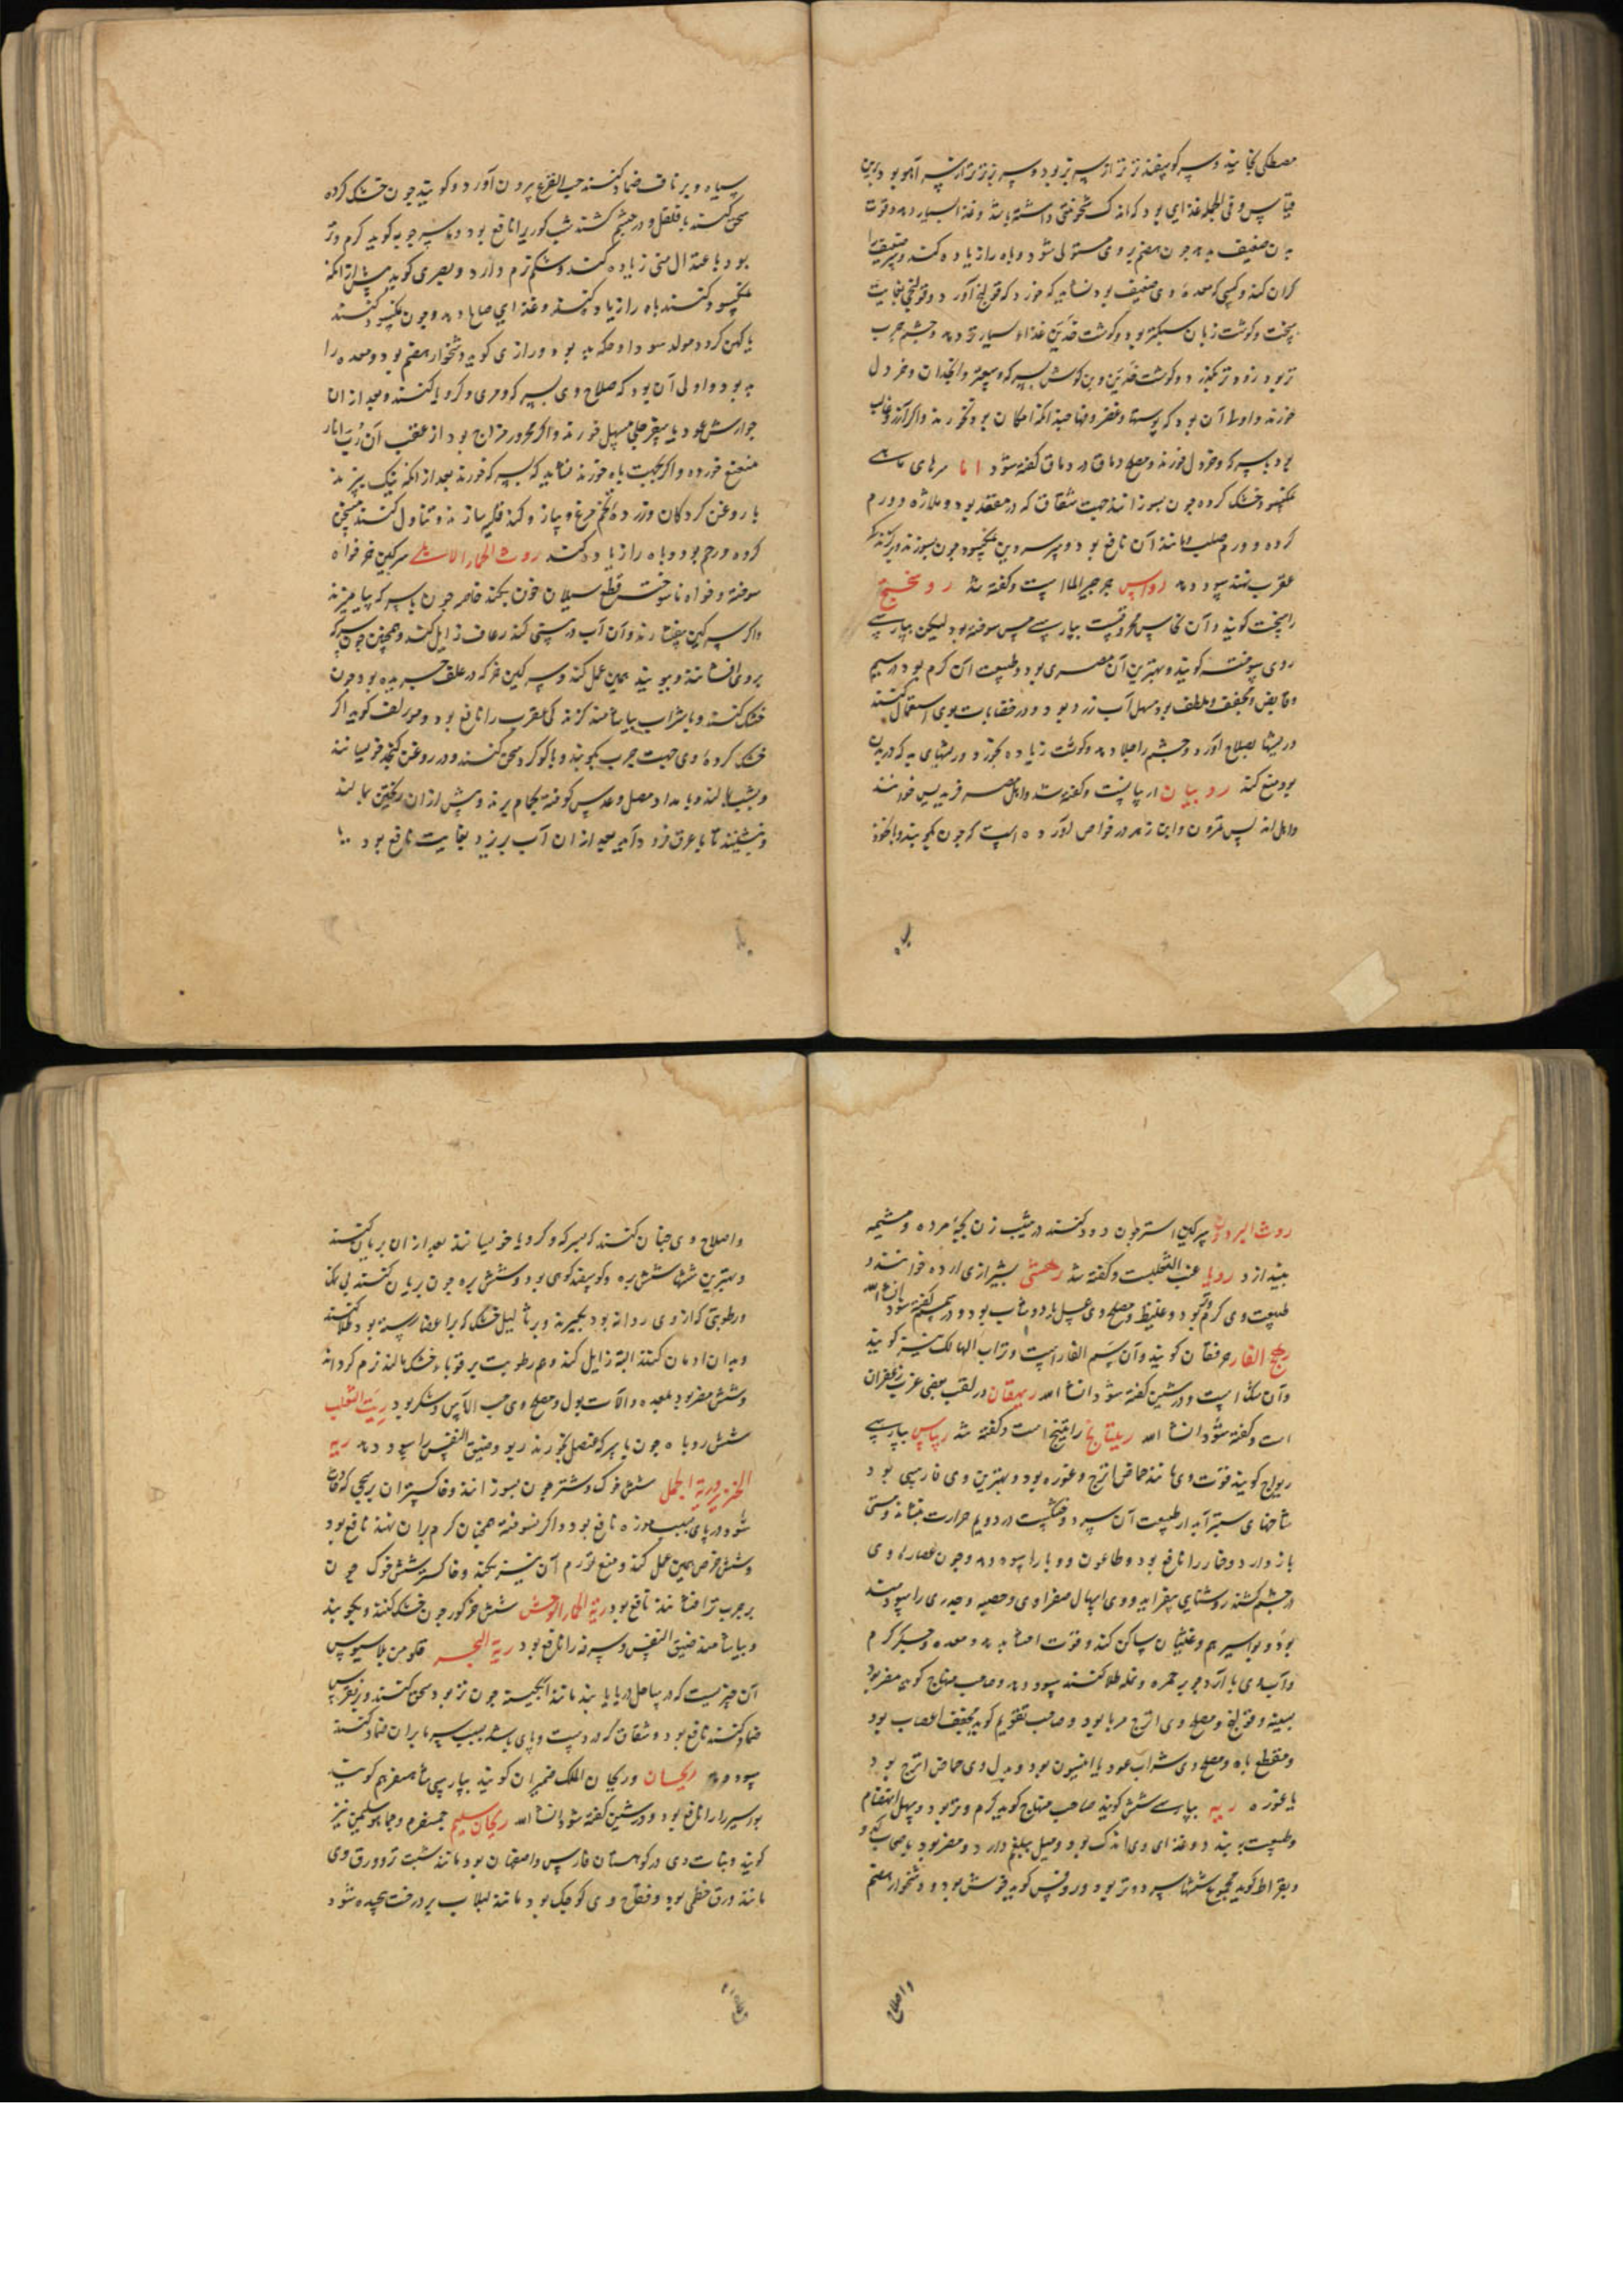 مصطکی بخایند و پیه کوسفند تر تر از پیه بز بود و پیه بز تر تر از پیه آهو بود و برین
قیاس و فی الجمله غذایی بود که اندک سخونتی داشته باشد و غذا بسیار دهد و قوت
بدن ضعیف بدهد چون هضم بر وی مستولی شود و باه را زیاده کند و پیر ضعیف را
کران کند و کسی که معده وی ضعیف بود نشاید که خورد که قولنج آورد و قولنجی بغایت
سخت و کوشت زبان سبکتر بود و کوشت خدین غذاء بسیارتر دهد و چشم چرب
تر بود زودتر بکذرد و کوشت خدین و بن کوش بسرکه و صعتر و انجدان و خردل
خورند و اوسط آن بود که پوستها و غضروفها چندانکه امکان بود نخورند و اکر آرزو غالب
بود بسرکه و خردل خورند و مصلح دماغ در دماغ کفته شود اما سرهای ماهی
نمکسود خشک کرده چون بسوزانند جهت شقاق که در مقعد بود و ملازه و ورم
کرده و ورم صلب و مانند آن نافع بود و سر سردین نمکسود چون بسوزند و بر کزندکی
عقرب نهند سود دهد رواس جرجیر الما است و کفته شد روسختج
راسخت کویند و آن نحاس محرق است بپارسی مس سوخته بود لیکن بپارسی
روی سوخته کویند و بهترین آن مصری بود و طبیعت آن کرم بود در سیم
و قابض و مجفف و ملطف بود مسهل آب زرد بود و در خضابات موی استعمال کنند
و ریشها بصلاح آورد و چشم را جلا دهد و کوشت زیاده بخورد و ریشهای بد که در بدن
بود منع کند روبیان اربیانست و کفته شد و اهل مصر فریدس خوانند
و اهل اندلس قمرون و ابن زهر در خواص آورده است که چون بکوبند و با نخود
سیاه و بر ناف ضماد کنند حب القرع بیرون آورد و کویند چون خشک کرده
سحق کنند با فلفل و در چشم کشند شب کوری را نافع بود و ماسرجویه کوید کرم و تر
بود باعتدال منی زیاده کند و شکم نرم دارد و بصری کوید پیش از آنکه
نمکسود کنند باه را زیاد کند و غذای صالح دهد و چون نمکسود کنند
یا کهن کردد مولد سودا و حکه بد بود و رازی کوید دشخوار هضم بود و معده را
بد بود و اولی آن بود که صلاح وی بسرکه و مری و کرویا کنند و بعد از آن
جوارش عود یا سفرجلی مسهل خورند و اکر محرور مزاج بود از عقب آن رب انار
منعنع خورد و اکر بجهت باه خورند نشاید که بسرکه خورند بعد از آنکه نیک بپزند
با روغن کردکان و زرده تخم مرغ و پیاز و کندنا قلیه سازند و تناول کنند مسخن
کرده و رحم بود و باه را زیاد کند روث الحمار الاهلی سرکین خر خواه
سوخته و خواه ناسوخته قطع سیلان خون بکند خاصه چون با سرکه بیامیزند
و اکر سرکین بیفشارند و آن آب در بینی کنند رعاف زایل کند و همچنین چون سرکه
بر وی افشانند و ببویند همین عمل کند و سرکین خر که در علف چریده بود چون
خشک کنند و با شراب بیاشامند کزندکی عقرب را نافع بود و مولف کوید اکر
خشک کرده وی جهت جرب بکوبند و با کوکرد سحق کنند و در روغن کنجد خیسانند
و بشب بمالند و بامداد مصل و عدس کوفته بحمام برند و پیش از آن ریختن بمالند
و بنشینند تا با عرق فرود آید بعد از آن آب بریزد بغایت نافع بود
سیاه
روث البرذون سرکین استر چون دود کنند در شیب زن بچه مرده و مشیمه
بیندازد روبا عنب الثعلبست و کفته شد رهشی بشیرازی ارده خوانند و
طبیعت وی کرم و تر بود و غلیظ و مصلح وی عسل یا دوشاب بود و در سمسم کفته شود انشاالله
رهج الفار مرقشان کویند و آن سم الفار است و تراب الهالک نیز کویند
و آن شک است و در شین کفته شود انشا الله ریهقان در لقب بعضی عرب زعفران
است و کفته شود انشا الله ریتیانج راتینج است و کفته شد ریباس بپارسی
ریواج کویند قوت وی مانند حماض اترج و غوره بود و بهترین وی فارسی بود
شاخهای ستبر آبدار طبیعت آن سرد و خشکست در دویم حرارت بنشاند و مستی
باز دارد و خمار را نافع بود و طاعون و وبا را سود دهد و چون عصاره وی
در چشم کشند روشنایی بیفزاید و وی اسهال صفراوی و حصبه و جدری را سودمند
بود و بواسیر هم و غثیان ساکن کند و قوت احشا بدهد و معده و جکر کرم
و آب وی با آرد جو بر حمره و نمله طلا کنند سود دهد و صاحب منهاج کوید مضر بود
بسینه و قولنج و مصلح وی اترج مربا بود و صاحب تقویم کوید مجفف اعصاب بود
و مقطع باه و مصلح وی شراب عود یا انیسون بود و بدل وی حماض اترج بود
یا غوره ریه بپارسی شش کویند صاحب منهاج کوید کرم و تر بود و سهل انهضام
و طبیعت ببندد و غذای وی اندک بود و میل ببلغم دارد و مضر بود باصحاب کد و
و بقراط کوید مجموع ششها سرد و تر بود و روفس کوید خوش بود و دشخوار هضم
واصلاح
واصلاح وی چنان کنند که بسرکه و کرویا خیسانند بعد از آن بریان کنند
و بهترین ششها شش بره و کوسفند کوهی بود و شش بره چون بریان کنند بی نمک
و رطوبتی که از وی روانه بود بکیرند و بر ثالیل خشک که بر اعضا رسته بود طلا کنند
و بدان ادمان کنند البته زایل کند و هم رطوبت بر قوباء خشک مالند نرم کرداند
و شش مضر بود بمعده و آلات بول و مصلح وی حب الآس و شکر بود ریة الثعلب
شش روباه چون با سرکه عنصل بخورند ربو و ضیق النفس را سود دهد ریه
الخنزیر و ریة الجمل شش خوک و شتر چون بسوزانند و خاکستر آن بر سحجی که حادث
شود در پای بسبب موزه نافع بود و اکر نسوخته همچنان کرم بر آن نهند نافع بود
و شش خرس همین عمل کند و منع تورم آن نیز بکند و خاکستر شش خوک چون
بر جرب تر افشانند نافع بود ریة الحمار الوحش شش خر کور چون خشک کنند و بکوبند
و بیاشامند ضیق النفس و سرفه را نافع بود ریة البحر قلومن بلاسیوس
آن چیزیست که در ساحل دریا یابند مانند آبکینه چون تر بود سحق کنند و بر نقرس
ضماد کنند نافع بود و شقاق که در دست و پای باشد بسبب سرما بر آن ضماد کنند
سود دهد ریحان و ریحان الملک ضمیران کویند بپارسی شاهسفرم کویند
بواسیر را نافع بود و در شین کفته شود انشا الله ریحان سلیم جمسفرم و جم سلیمن نیز
کویند و نبات وی در کوهستان فارس و اصفهان بود مانند شبت تر و ورق وی
مانند ورق خطمی بود و فقاح وی کوچک بود مانند لبلاب بر درخت پیچیده شود